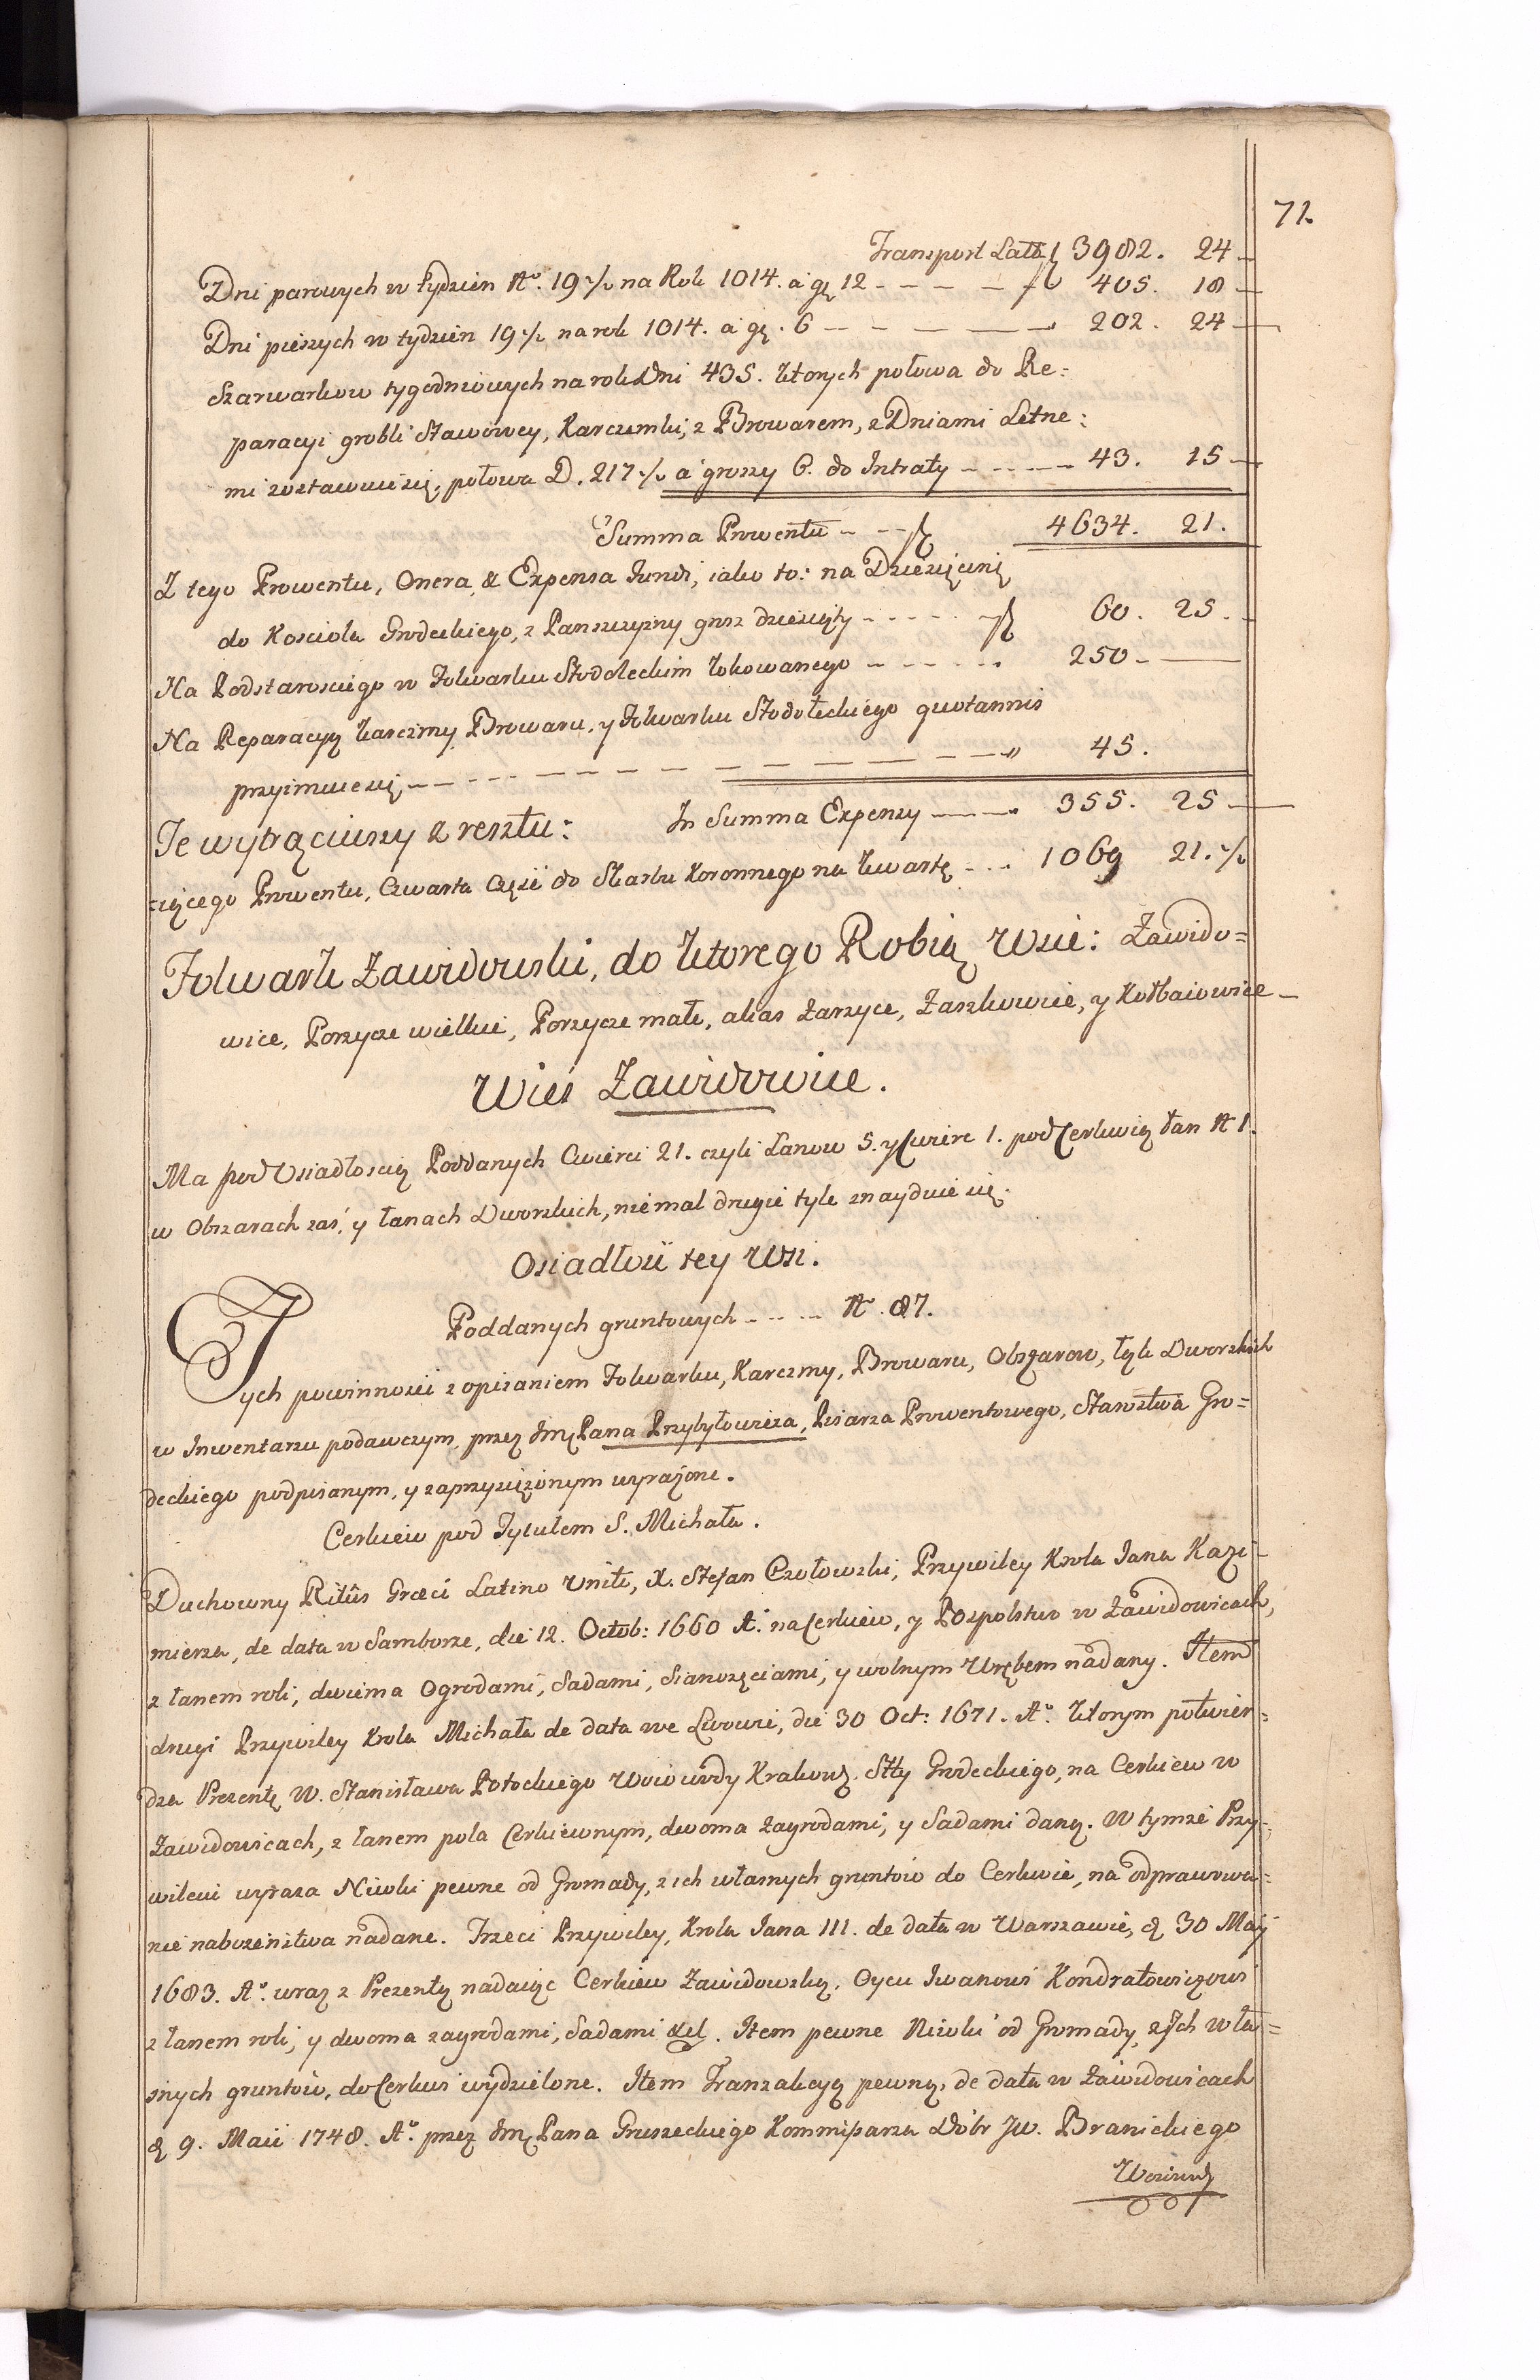 71.
Transport Latt. f 3982. 24
Dni parowych w tydzien No. 19½ na Rok 1014. a gr 12 - - - - f 405. 18
Dni pieszych w tydzien 19½ na rok 1014. a gr. 6 - - - - 202. 24
Szarwarkow tygodniowych na rok Dni 435. ktorych połowa do Re=
paracyi grobli Stawowey, Karczemki, z Browarem, z Dniami Letne:
mi zostawuie się, połowa D. 217½ a groszy 6. do Intraty - - - - 43. 15
Summa Prowentu - - - f 4634. 21.
Z tego Prowentu, Onera, & Expensa Fundi, iako to: na Dziesięcinę
do Kosciola Grodeckiego, z Panszczyzny grosz dziesięty - - - - - f 60. 25.
Na Podstarosciego w Folwarku Stodoleckim lokowanego - - - - - 250. -
Na Reparacyą karczmy Browaru, y Folwarku Stodołeckiego quotannis
przyimuie się - - - - - - - - - - - - „ 45.
Te wytrąciwszy z resztu: In Summa Expensy - - - 355. 25
:iącego Prowentu, Czwarta Częsć do Skarbu Koronnego na kwartę - - . 1069 21.½
Folwark Zawidowski, do ktorego Robią Wsie: Zawido=
wice, Porzycze wielkie, Porzycze małe, alias Zarzyce, Zaszkowice, y Kołbaiowice
Wieś Zawidowice.
Ma pod Osiadłoscią Poddanych Cwierci 21. czyli Łanow 5. y Cwierc 1. pod Cerkwią łan N 1.
w Obszarach zaś, y łanach Dworskich, nie mal drugie tyle znayduie się.
Osiadłosć tey Wsi.
Poddanych gruntowych - - - - - N. 87.
Tych powinnosci z opisaniem Folwarku, Karczmy, Browaru, Obszarow, łąk Dworskich
w Inwentarzu podawczym, przez Jmć Pana Przybyłowicza, Pisarza Prowentowego, Starostwa Gro=
deckiego podpisanym, y zaprzysiężonym wyrażone.
Cerkiew pod Tytułem S. Michała.
Duchowny Ritûs Græci Latino Uniti, X. Stefan Czołowski, Przywiley Krola Jana Kazi-
mierza, de data w Samborze, die 12. Octob: 1660 Ao. na Cerkiew, y Pospolstwo w Zawidowicach,
z łanem roli, dwiema Ogrodami, Sadami, Sianozęciami, y wolnym Wrębem nadany. Item
drugi Przywiley Krola Michała de data we Lwowie, die 30 Oct: 1671. Ao. ktorym potwier=
dza Prezentę W. Stanisława Potockiego Woiewody Krakows. Stty Grodeckiego, na Cerkiew w
Zawidowicach, z łanem pola Cerkiewnym, dwoma zagrodami, y Sadami daną. W tymże Przy=
wileiu wyraza Niwki pewne od Gromady, z ich własnych gruntow do Cerkwie, na odprawowa=
nie nabożeństwa nadane. Trzeci Przywiley, Krola Jana III. de data w Warszawie, d 30 Maij
1683. Ao. wraz z Prezentą nadaiąc Cerkiew Zawidowską, Oycu Iwanowi Kondratowiczowi
z łanem roli, y dwoma zagrodami, Sadami &c. Item pewne Niwki od Gromady, z Ich wła=
snych gruntow, do Cerkwi wydzielone. Item Tranzakcyą pewną, de data w Zawidowicach
d 9. Maii 1748. Ao. przez Jmć Pana Gruszeckiego Kommissarza Dobr JW. Branickiego